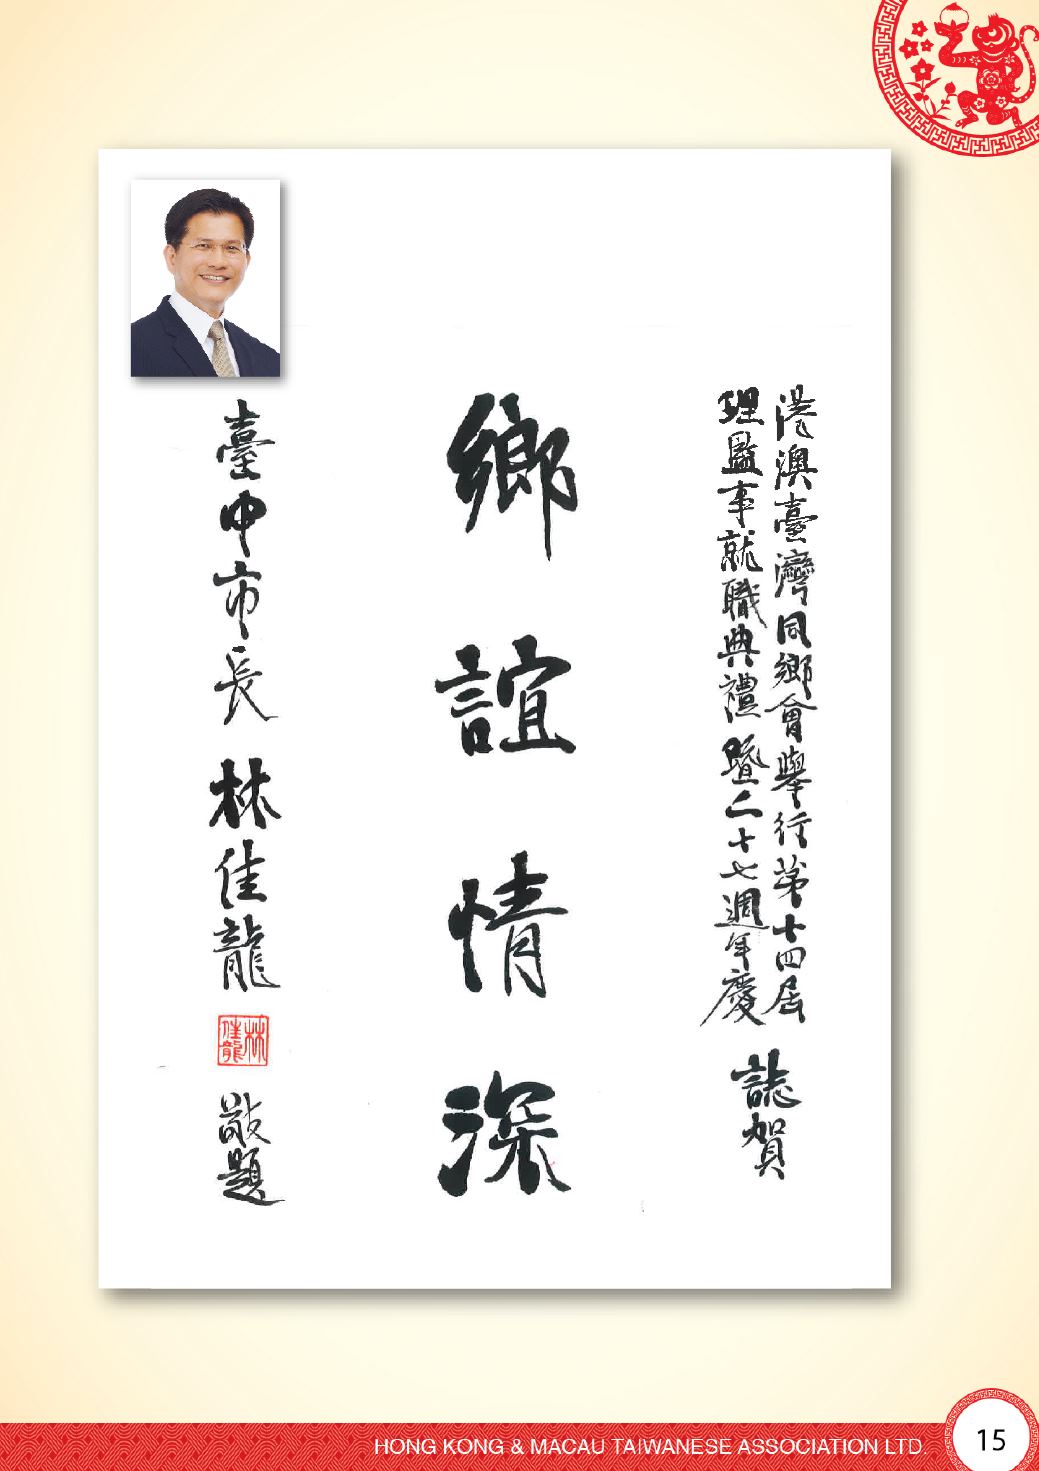 港澳臺灣同鄉會舉行第十四屆
理監事就職典禮暨二十七週年慶
誌賀
鄉誼情深
臺中市長 林佳龍
林佳龍
敬題
HONG KONG & MACAU TAIWANESE ASSOCIATION LTD.
15